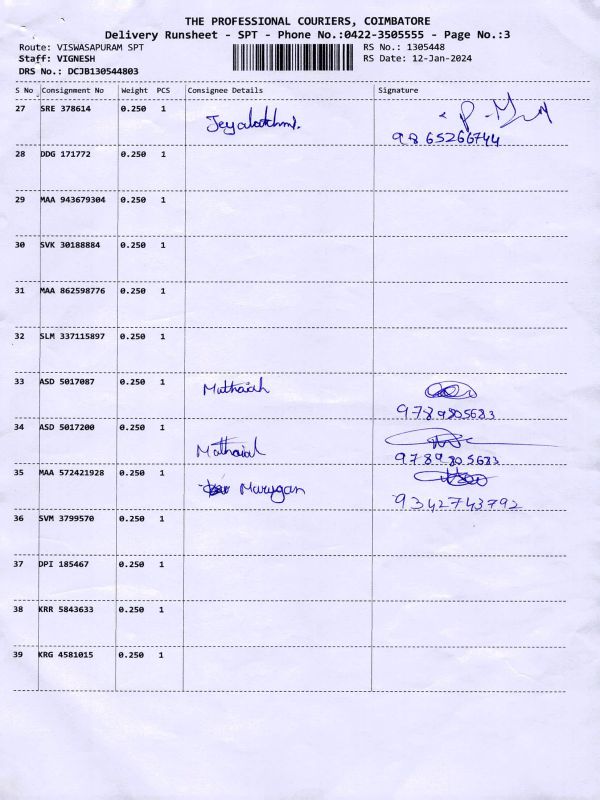 THE PROFESSIONAL COURIERS, COIMBATORE
Delivery Runsheet - SPT - Phone No.:0422-3505555 - Page No.:3
Route: VISWASAPURAM SPT RS No.: 1305448
Staff: VIGNESH RS Date: 12-Jan-2024
DRS No.: DCJB130544803
S No Consignment No Weight PCS Consignee Details Signature
27 SRE 378614 0.250 1 Jeyalakhmi
9865266744
28 DDG 171772 0.250 1
29 MAA 943679304 0.250 1
30 SVK 30188884 0.250 1
31 MAA 862598776 0.250 1
32 SLM 337115897 0.250 1
33 ASD 5017087 0.250 1 Muthaiah
9789805683
34 ASD 5017200 0.250 1
Mathaial 9789805683
35 MAA 572421928 0.250 1 Murugan
9342743792
36 SVM 3799570 0.250 1
37 DPI 185467 0.250 1
38 KRR 5843633 0.250 1
39 KRG 4581015 0.250 1